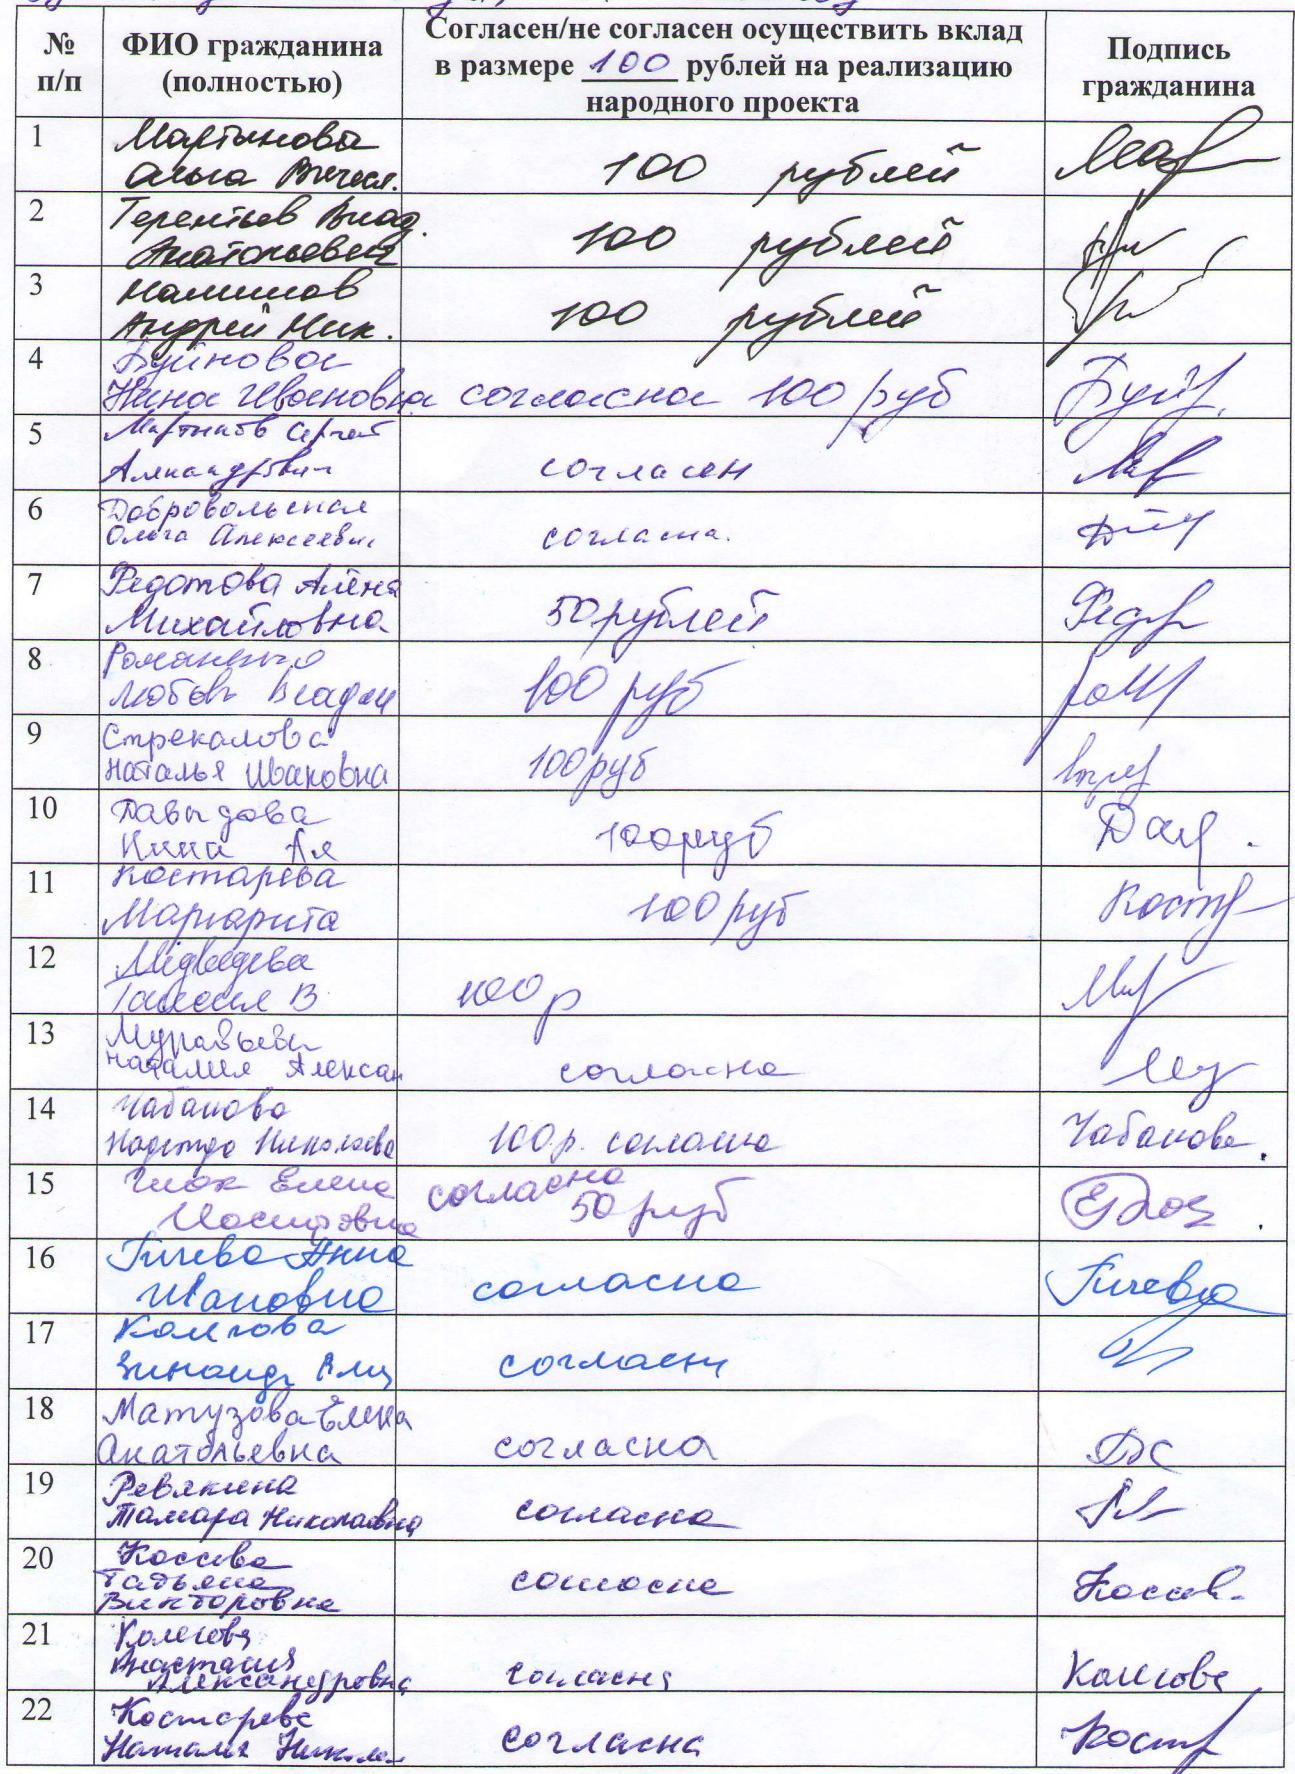 № п/п
ФИО гражданина (полностью)
Согласен/не согласен осуществить вклад
в размере 100 рублей на реализацию
народного проекта
Подпись гражданина
1
Мартынова
Ольга Вячесл.
100 рублей
2
Терентьев Влад.
Анатольевич
100 рублей
3
Андрей Ник.
100 рублей
4
Буйновой
Нина Ивановна согласна 100 руб
Буйн.
5
Мартынов Сергей
Александрович
согласен
6
Добровольская
Ольга Алексеевн
согласна.
7
Федотова Алёна
Михайловна
50 рублей
Федр
8
Романенко
Любовь Влади
100 руб
ром
9
Стрекалова
Наталья Ивановна
100 руб
Стре
10
Давыдова
Нина
100 руб
Дав.
11
Костарева
Маргарита
100 руб
Костр
12
Медведева
В
100 р
13
Муравьева
Наталия Алексан
согласна
Му
14
Чабанова
Надежда Николаевна
100 р. согласна
Чабанова.
15
Елена
Иосифовна
согласна
50 руб
16
Гичева Анна
Ивановна
согласна
Гичева
17
Колегова
Зинаида
согласна
18
Матузова Елена
Анатольевна
согласна
19
Ревякина
Тамара Николаевна
согласна
20
Косева
Татьяна
Викторовна
согласна
Косев.
21
Колегова
Анастасия
Александровна
согласна
Колегова
22
Костарева
Наталия Николае
согласна
Костр